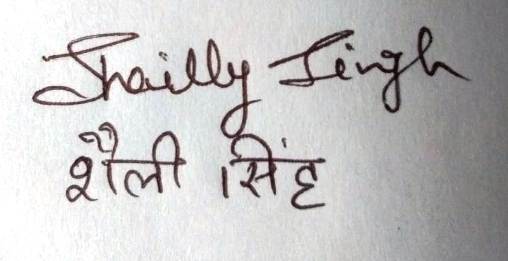 Shailly Singh
शैली सिंह